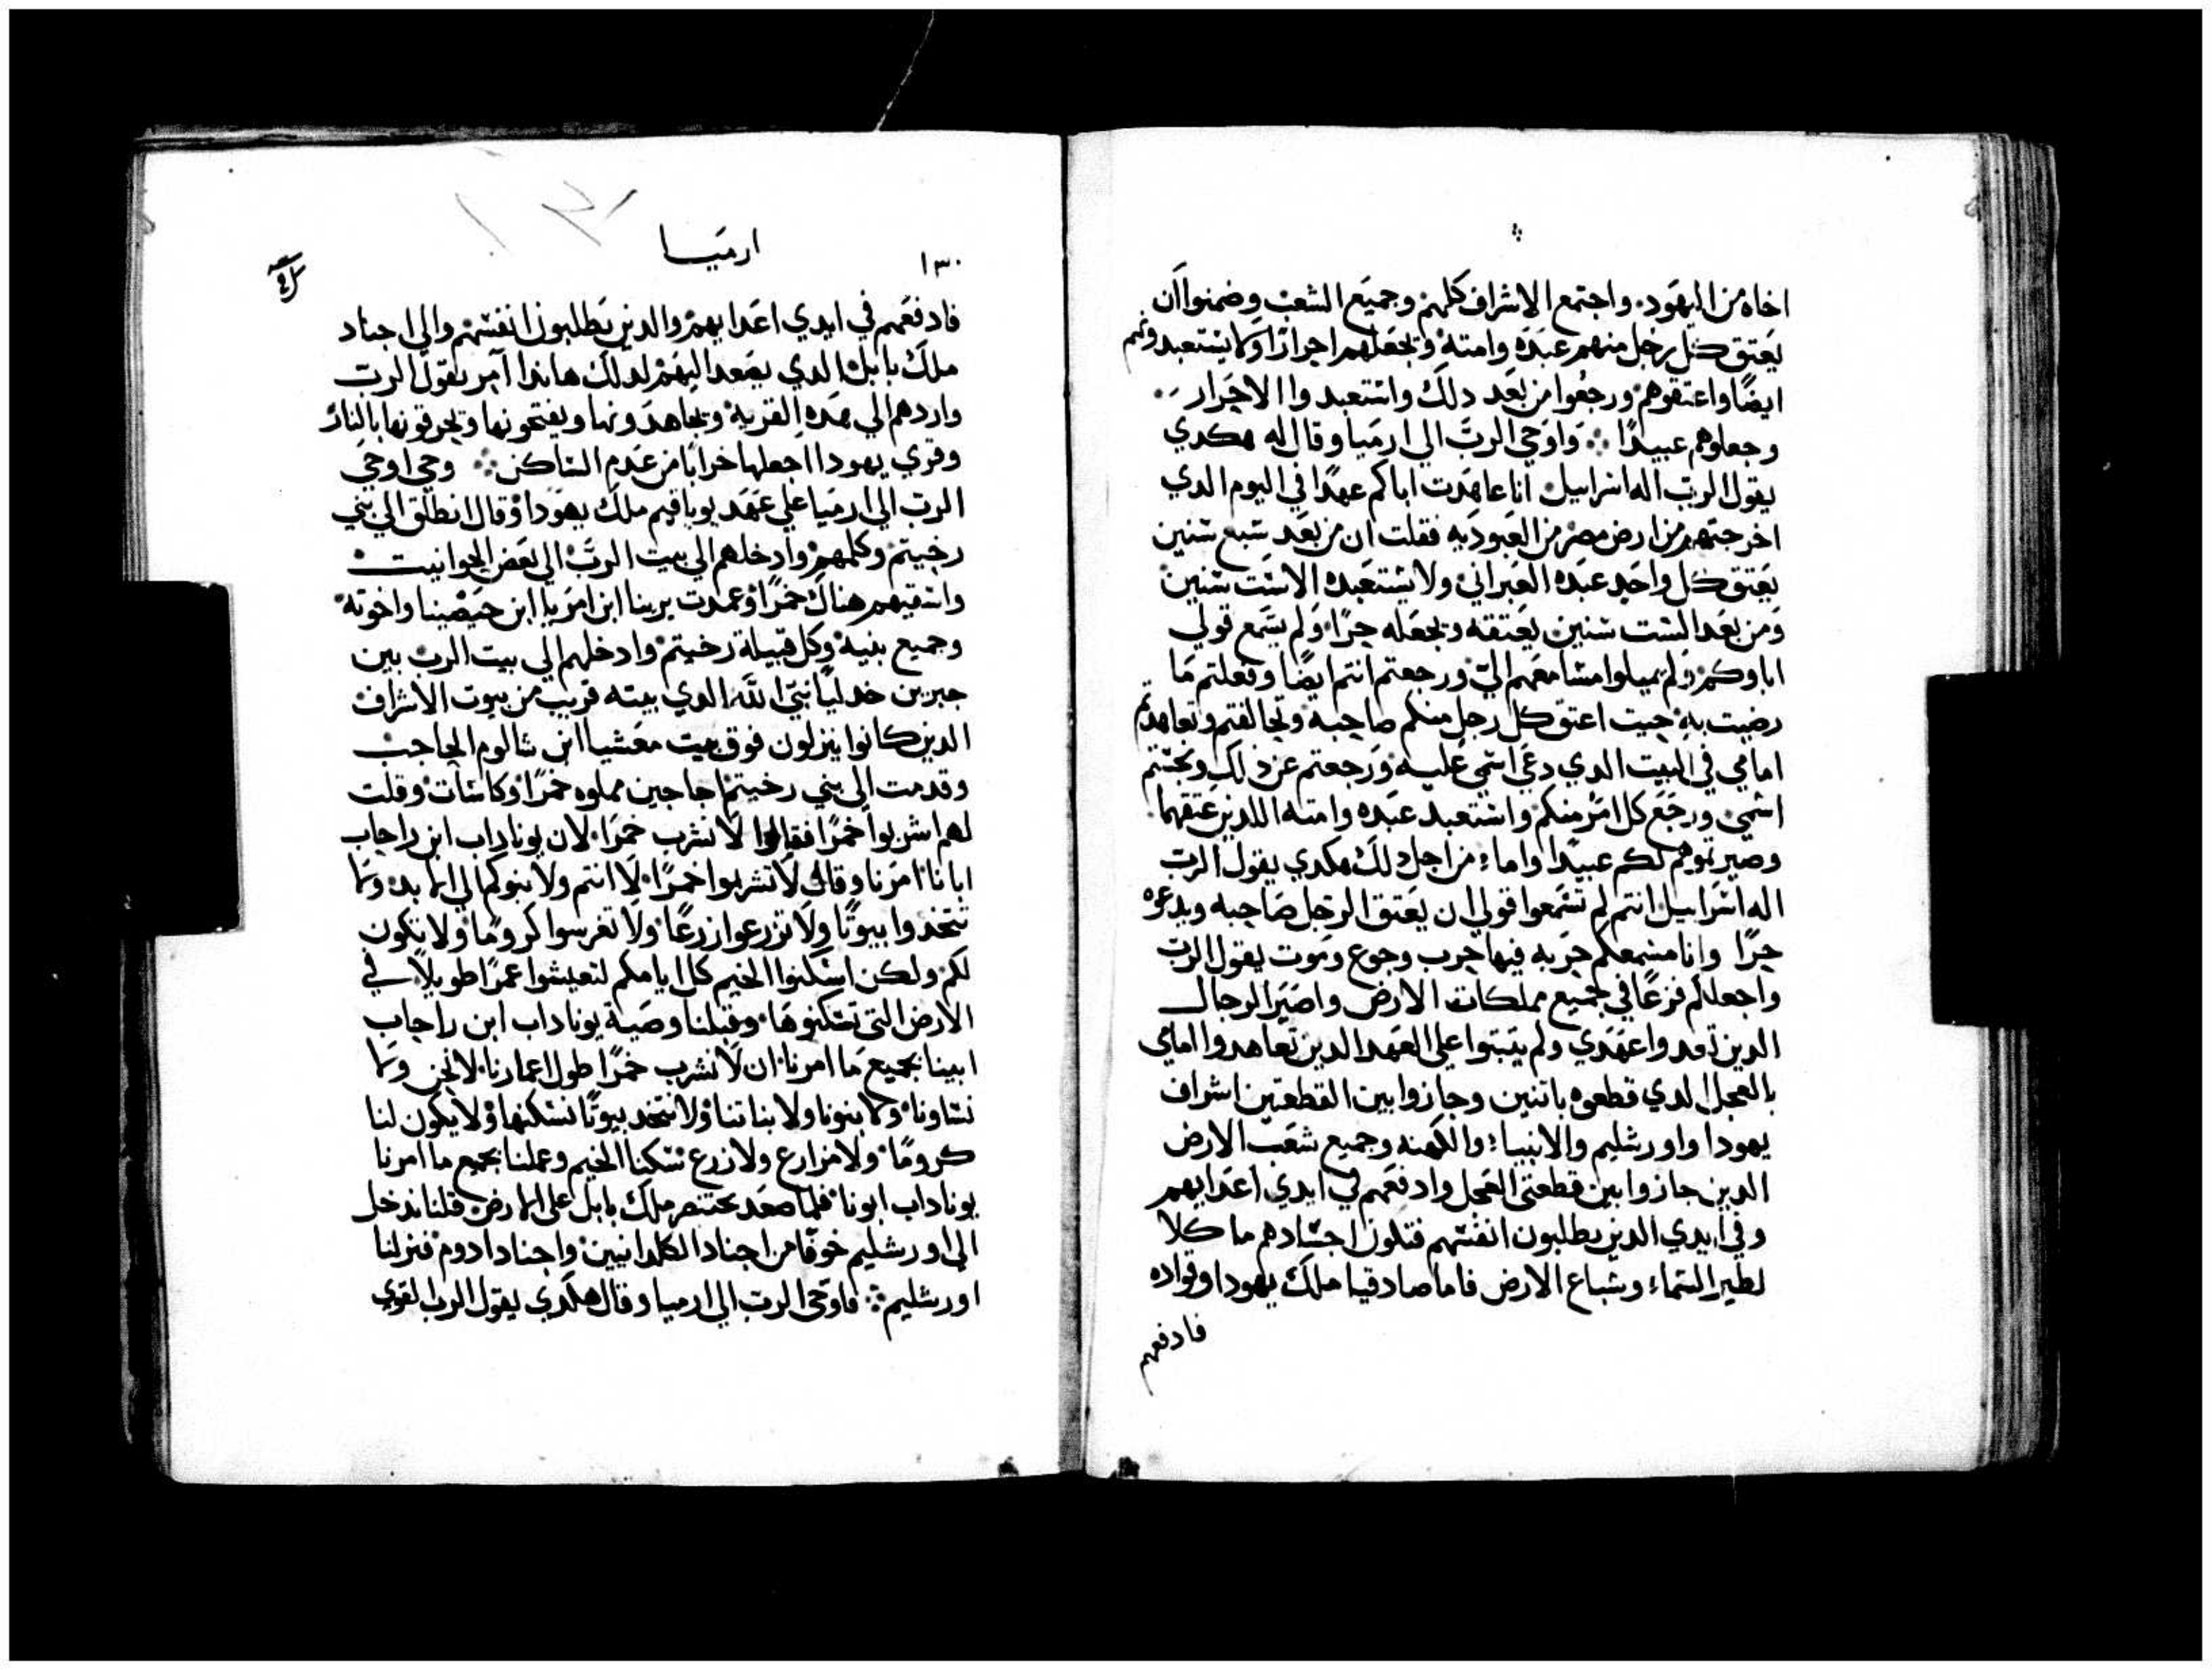 اخاه من اليهود. واجتمع الاشراف كلهم وجميع الشعب وضمنوا ان
يعتق كل رجل منهم عبده وامته ويجعلهم احرارًا ولا يستعبدونهم
ايضًا واعتقوهم ورجعوا من بعد دلك واستعبدوا الاحرار
وجعلوهم عبيدًا ⁘ واوحي الرب الي ارميا وقال له هكدي
يقول الرب اله اسراييل انا عاهدت اباكم عهدًا في اليوم الدي
اخرجتهم من ارض مصر من العبوديه فقلت ان من بعد سبع سنين
يعتق كل واحد عبده العبراني ولا يستعبده الا ست سنين
ومن بعد الست سنين يعتقه ويجعله حرًا ولم يسمع قولي
اباوكم ولم يميلوا مسامعهم الي ورجعتم انتم ايضًا وفعلتم ما
رضيت به حيت اعتق كل رجل منكم صاحبه وتحالفتم وتعاهدتم
امامي في البيت الدي دعي اسمي عليه ورجعتم عن دلك ونجستم
اسمي ورجع كل امر منكم واستعبد عبده وامته اللدين عتقهما
وصيرتموهم لكم عبيدًا واماء من اجل دلك هكدي يقول الرب
اله اسراييل انتم لم تسمعوا قولي ان يعتق الرجل صاحبه ويدعوه
حرًا وانا مسمعكم حريه فيها حرب وجوع وموت يقول الرب
واجعلكم فزعًا في جميع مملكات الارض واصير الرجال
الدين تعدوا عهدي ولم يتبتوا علي العهد الدين تعاهدوا امامي
بالعجل الدي قطعوه باتنين وجازوا بين القطعتين اشراف
يهودا واورشليم والانبياء والكهنه وجميع شعب الارض
الدين جازوا بين قطعتي العجل وادفعهم في ايدي اعدايهم
وفي ايدي الدين يطلبون انفسهم فتكون اجسادهم ماكلا
لطير السماء وسباع الارض فاما صادقيا ملك يهودا وقواده
فادفعهم
١٣٠
ارميا
فادفعهم في ايدي اعدايهم والدين يطلبون انفسهم والي اجناد
ملك بابل الدي يصعد اليهم لدلك هاندا آمر يقول الرب
واردهم الي هده القريه ويجاهدونها ويفتحونها ويحرقونها بالنار
وقري يهودا اجعلها خرابًا من عدم الساكن ⁘ وحي اوحي
الرب الي ارميا علي عهد يوياقيم ملك يهودا وقال انطلق الي بني
رخبتم وكلمهم وادخلهم الي بيت الرب الي بعض الحوانيت
واسقيهم هناك خمرًا وعمدت برينا ابن امريا ابن حبصينا واخوته
وجميع بنيه وكل قبيلة رخبتم وادخلهم الي بيت الرب بين
جبرين خدليا نبي الله الدي بيته قريب من بيوت الاشراف
الدين كانوا ينزلون فوق بيت معشيا ابن شالوم الحاجب
وقدمت الي بني رخبتم اجاجين مملوه خمرًا وكاسات وقلت
لهم اشربوا خمرًا فقالوا لا نشرب خمرًا لان يوناداب ابن راحاب
ابانا امرنا وقال لا تشربوا خمرًا لا انتم ولا بنوكم الي الابد ولا
تتخدوا بيوتًا ولا تزرعوا زرعًا ولا تغرسوا كرومًا ولا يكون
لكم ولكن اسكنوا الخيم كل ايامكم لتعيشوا عمرًا طويلاً في
الارض التي تسكنوها وقبلنا وصية يوناداب ابن راحاب
ابينا بجميع ما امرنا ان لا نشرب خمرًا طول اعمارنا لا نحن ولا
نساونا ولا بنونا ولا بناتنا ولا نتخد بيوتًا نسكنها ولا يكون لنا
كرومًا ولا مزارع ولا زرع سكنا الخيم وعملنا بجميع ما امرنا
يوناداب ابونا فلما صعد بختنصر ملك بابل علي الارض قلنا ندخل
الي اورشليم خوفًا من اجناد الكلدانيين واجناد ادوم فنزلنا
اورشليم ⁘ فاوحي الرب الي ارميا وقال هكدي يقول الرب القوي